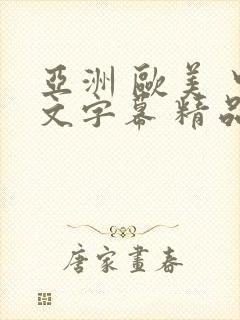 亞洲 歐美
文字幕 精品
唐家畫春